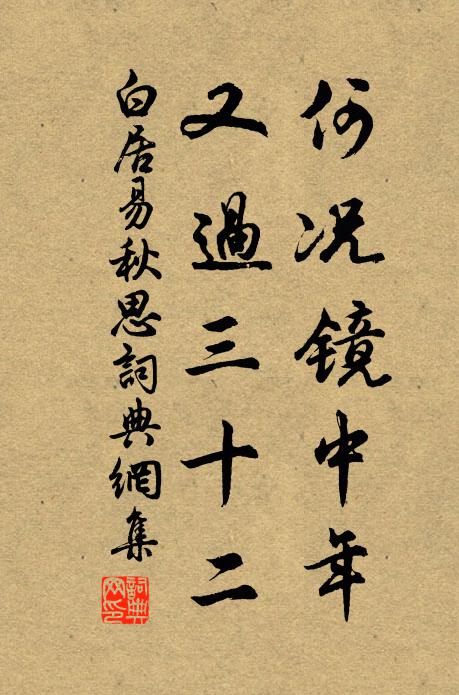 何况镜中年
又過三十二
白居易秋思詞典網集
詞典网印